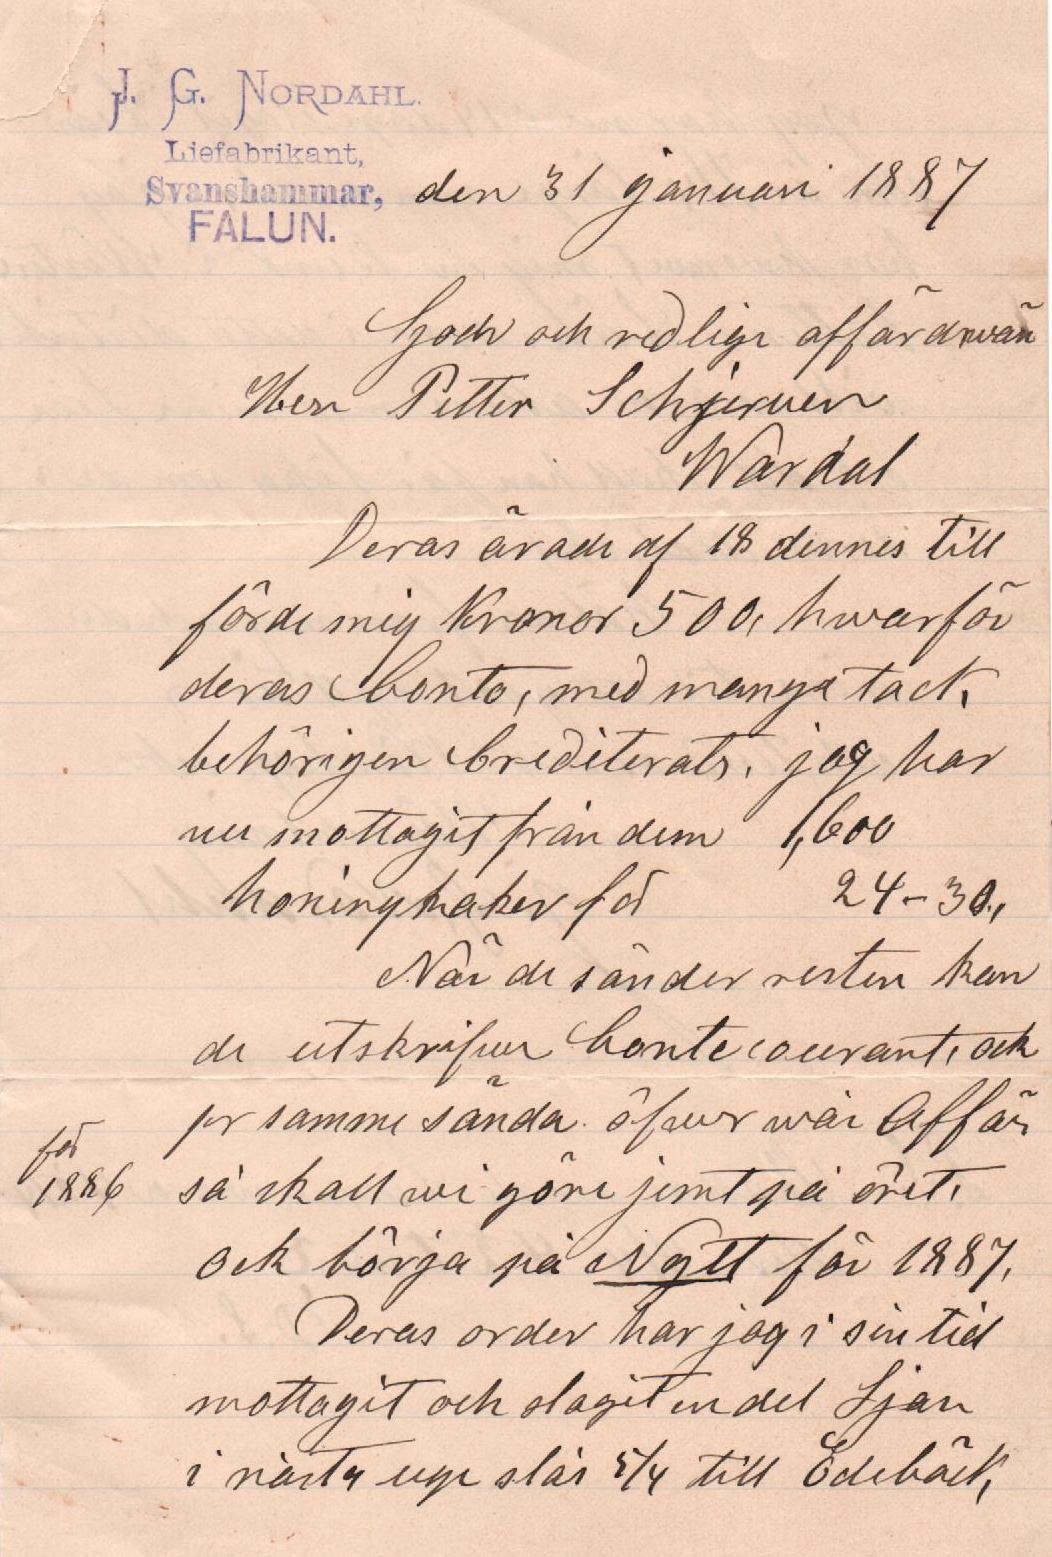 J. G. NORDAHL.
Liefabrikant,
Svanshammar,
FALUN.
den 31 januari 1887
Godh och redlige affärdwän
Herr Petter Schjerven
Wärdal
Deras ärade af 18 dennes till
förde mig Kronor 500, hwarför
deras Conto, med manga tack,
behörigen Crediterats. jag har
nu mottagit från dem 1,600
honingkaker få 24-30,
När de sänder resten kan
de utskrifwer Contecourant, ock
pr samme sända öfwer wår Affär
för
1886
så skall wi göre jemt på öret,
ock börja på Nytt för 1887,
Deras order har jag i sin tid
mottagit och slagit en del Ljan
i nästa uge slås 5/4 till Edebäck,